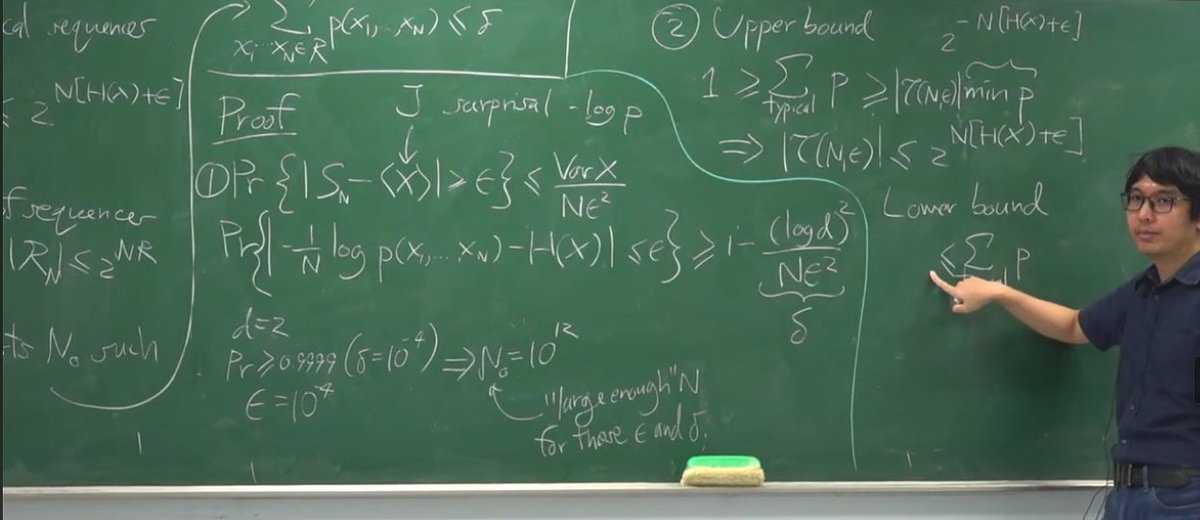 cal sequences
≤ 2^{N[H(X)+ε]}
f sequences
|R_N| ≤ 2^{NR}
ts N₀ such
∑_{x₁...x_N∈R} p(x₁,...,x_N) ≤ δ
Proof
J surprisal -log p
① Pr{|S_N - ⟨X⟩| ≥ ε} ≤ Var X / Nε²
Pr{|-1/N log p(x₁,...,x_N) - H(X)| ≤ ε} ≥ 1 - (log d)² / Nε²
δ
d=2
Pr ≥ 0.9999 (δ=10⁻⁴) ⇒ N₀=10¹²
ε=10⁻⁴
"large enough" N
for these ε and δ.
② Upper bound
2^{-N[H(X)+ε]}
1 ≥ ∑_{typical} p ≥ |T(N,ε)| min p
⇒ |T(N,ε)| ≤ 2^{N[H(X)+ε]}
Lower bound
≤ ∑ p